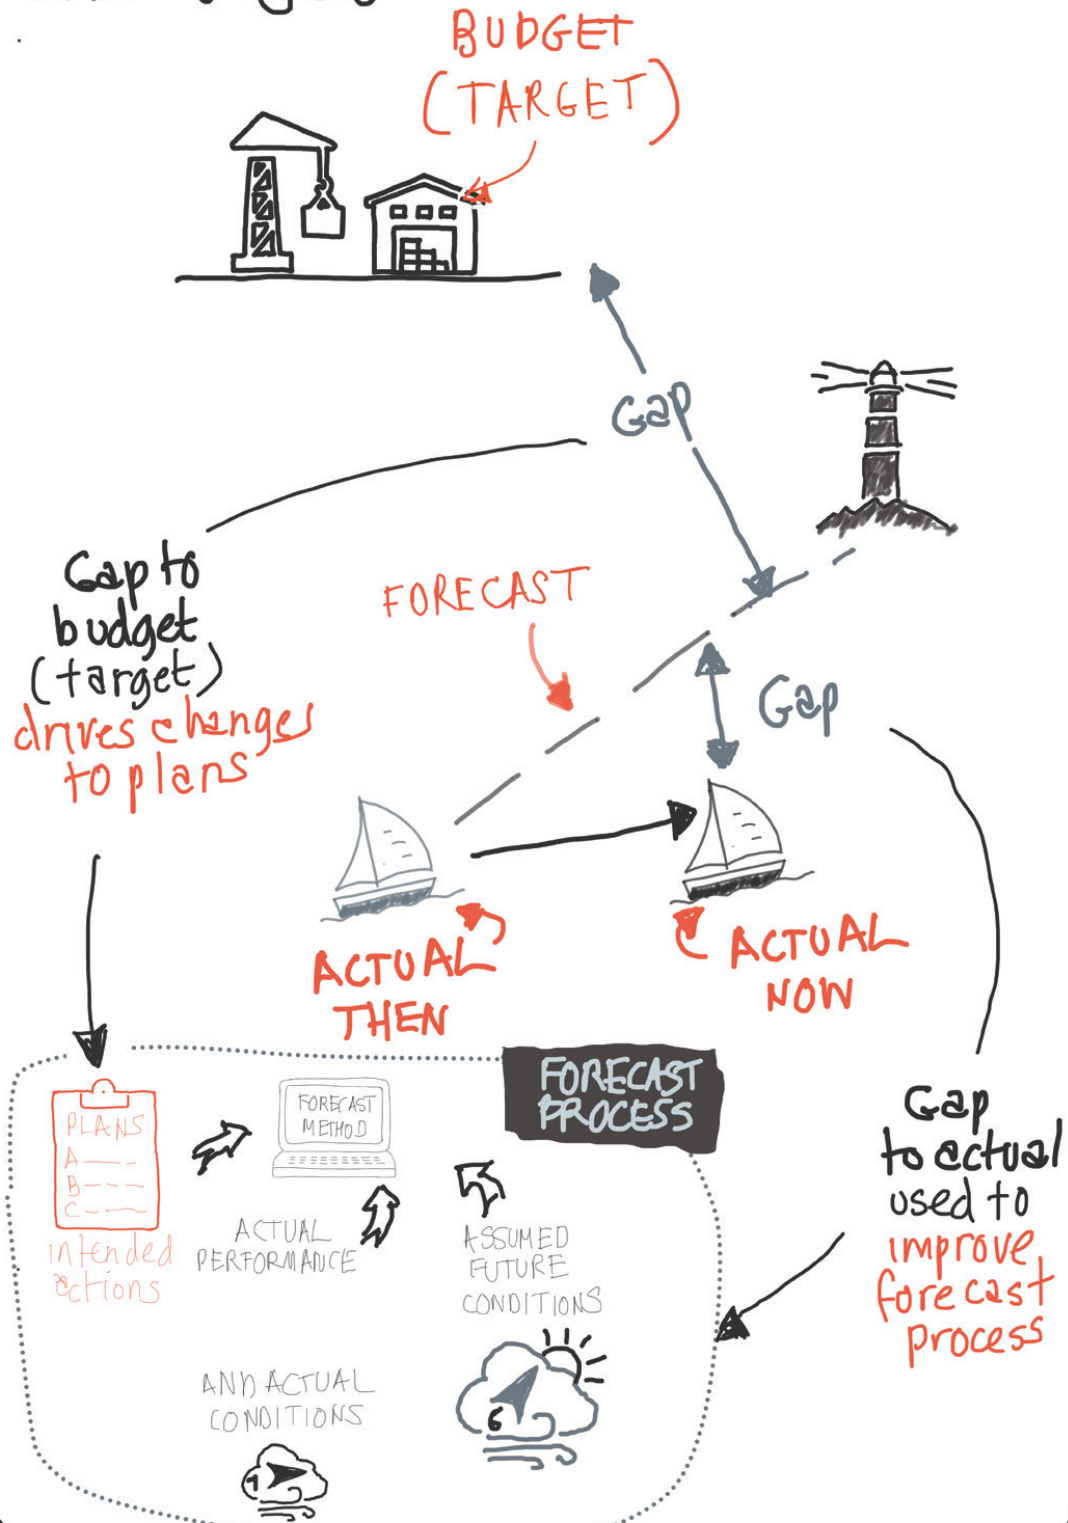 BUDGET
(TARGET)
Gap
Gap to
budget
(target)
drives changes
to plans
FORECAST
Gap
ACTUAL
THEN
ACTUAL
NOW
FORECAST
PROCESS
PLANS
A
B
C
intended
actions
FORECAST
METHOD
ACTUAL
PERFORMANCE
ASSUMED
FUTURE
CONDITIONS
6
AND ACTUAL
CONDITIONS
1
Gap
to actual
used to
improve
forecast
process